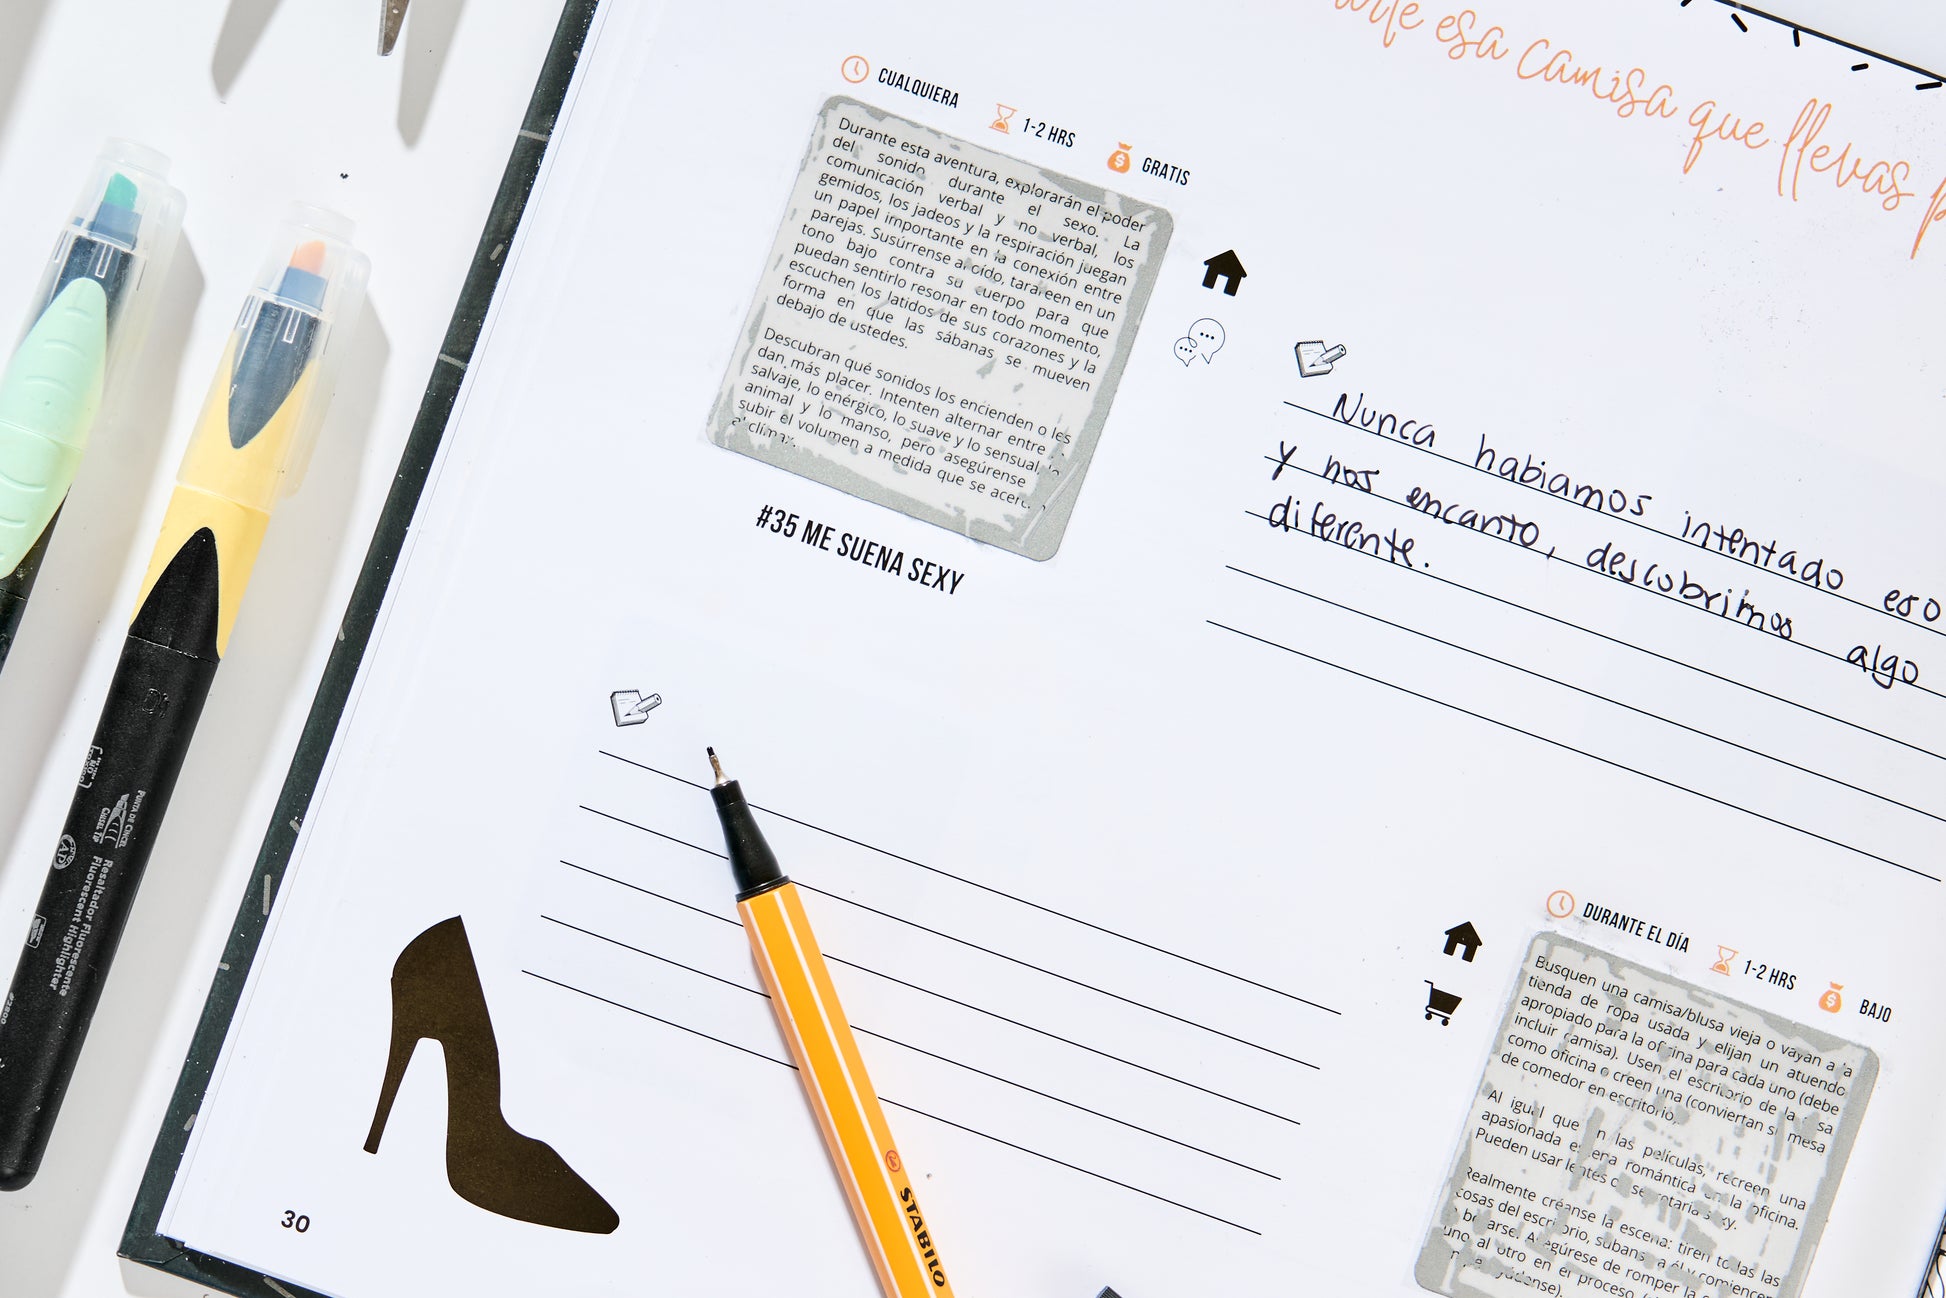 esa camisa que llevas
CUALQUIERA
1-2 HRS
GRATIS
Durante esta aventura, explorarán el poder
del sonido durante el sexo. La
comunicación verbal y no verbal, los
gemidos, los jadeos y la respiración juegan
un papel importante en la conexión entre
parejas. Susúrrense al oído, tarareen en un
tono bajo contra su cuerpo para que
puedan sentirlo resonar en todo momento,
escuchen los latidos de sus corazones y la
forma en que las sábanas se mueven
debajo de ustedes.
Descubran qué sonidos los encienden o les
dan más placer. Intenten alternar entre
salvaje, lo enérgico, lo suave y lo sensual,
animal y lo manso, pero asegúrense
subir el volumen a medida que se
#35 ME SUENA SEXY
Nunca habiamos intentado eso
y nos encanto, descubrimos algo
diferente.
DURANTE EL DÍA
1-2 HRS
BAJO
Busquen una camisa/blusa vieja o vayan a la
tienda de ropa usada y elijan un atuendo
apropiado para la oficina para cada uno (debe
incluir camisa). Usen el escritorio de la
como oficina o creen una (conviertan su mesa
de comedor en escritorio).
Al igual que en las películas, recreen una
apasionada escena romántica en la oficina.
Pueden usar lentes de secretaria sexy.
Realmente créanse la escena: tiren todas las
cosas del escritorio, subans a él y comiencen
a besarse. Asegúrese de romper la
uno al otro en el proceso
30
STABILO
PUNTA DE CINCEL
CHISEL TIP
AP
Resaltador Fluorescente
Fluorescent Highlighter